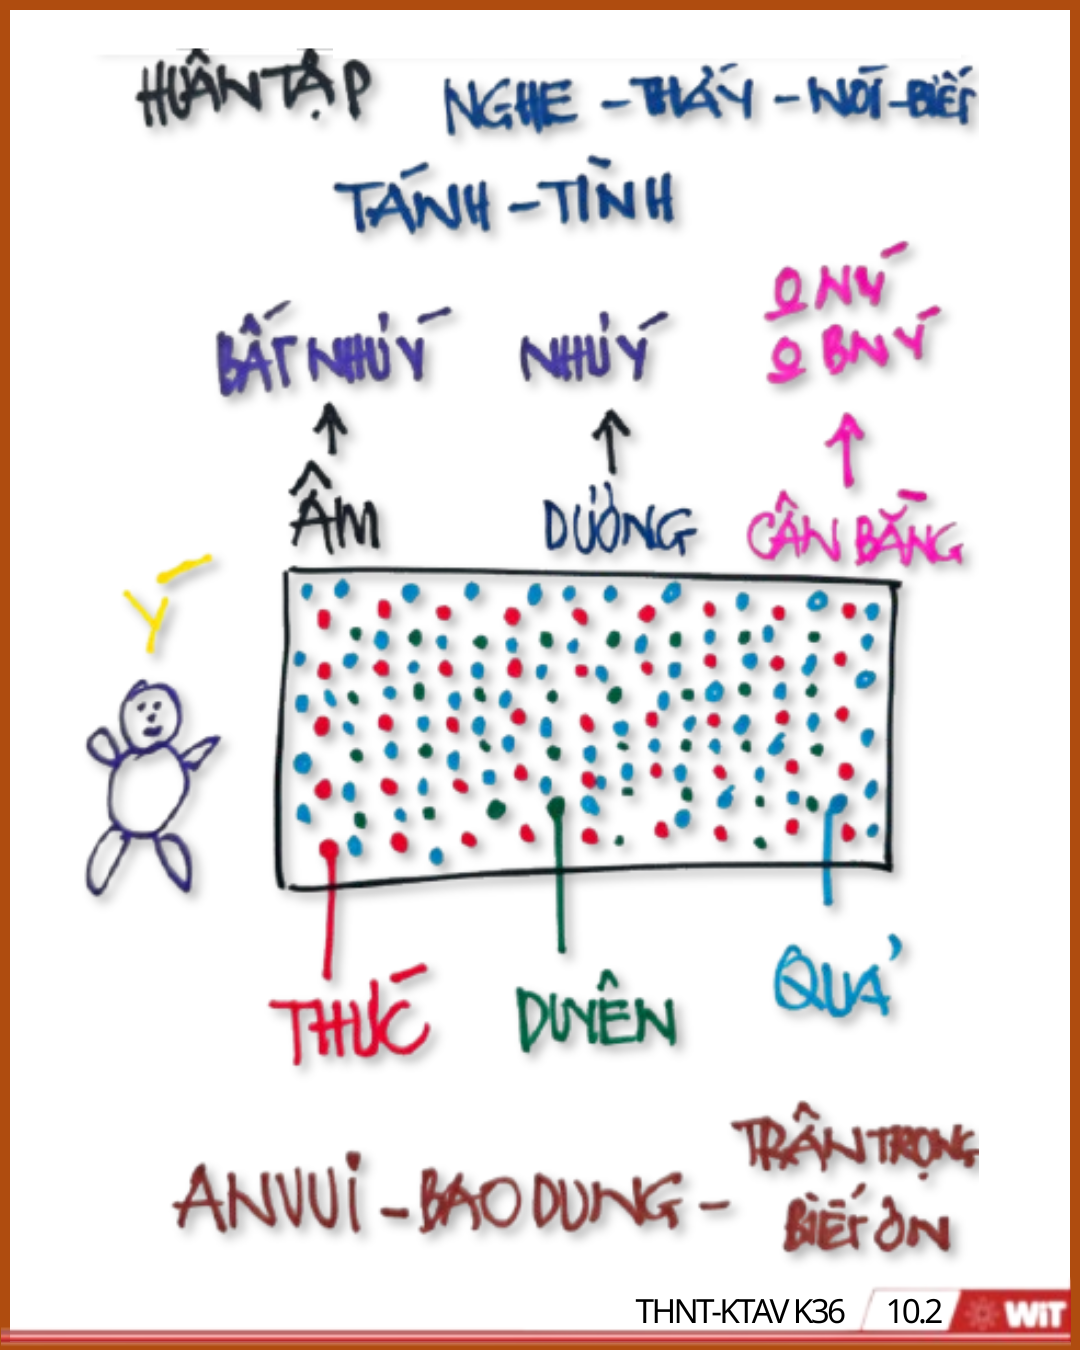 HUÂN TẬP NGHE - THẤY - NÓI - BIẾT
TÁNH - TÌNH
BẤT NHƯ Ý NHƯ Ý O NÝ
O BNÝ
ÂM DƯƠNG CÂN BẰNG
Ý
THỨC DUYÊN QUẢ
AN VUI - BAO DUNG - TRÂN TRỌNG
BIẾT ƠN
THNT-KTAV K36 10.2 WiT